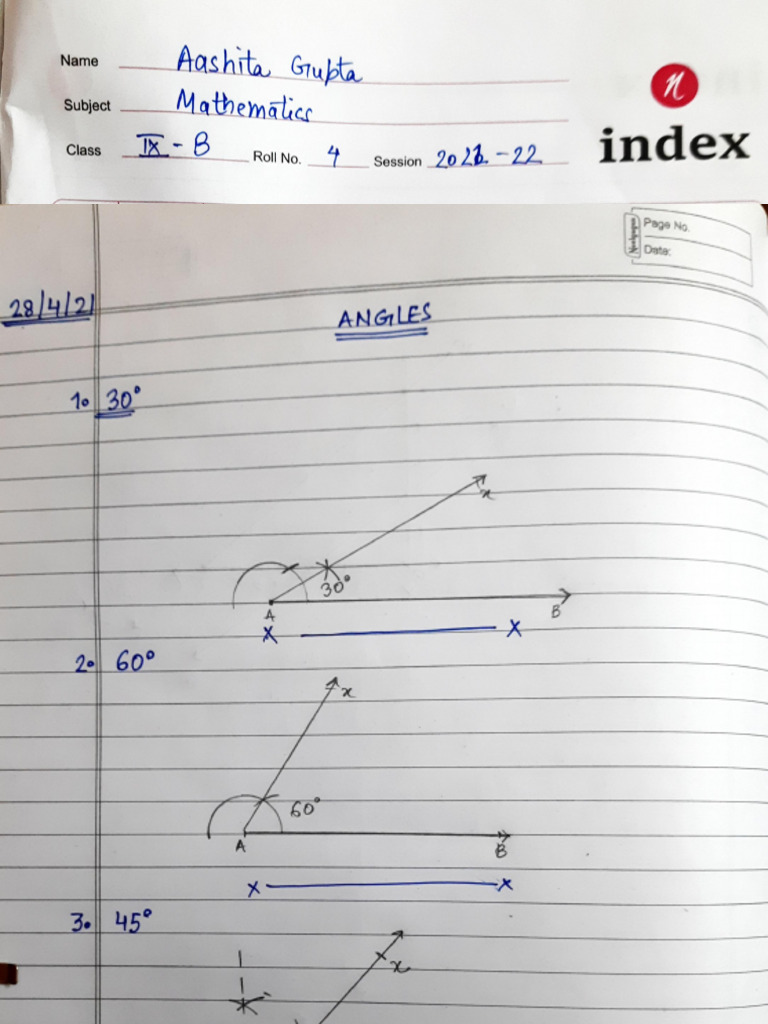 Name Aashita Gupta
Subject Mathematics
Class IX - B Roll No. 4 Session 2021-22
n
index
Neelgagan
Page No.
Date:
28/4/21
ANGLES
1. 30°
x
30°
A B
x x
2. 60°
x
60°
A B
x x
3. 45°
x